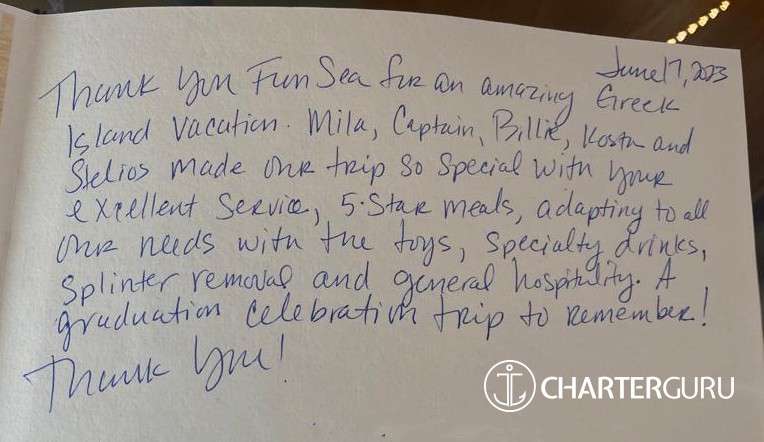 June 17, 2023
Thank you Fun Sea for an amazing Greek
Island vacation. Mila, Captain, Billie, Kosta and
Stelios made our trip so special with your
excellent service, 5-star meals, adapting to all
our needs with the toys, specialty drinks,
splinter removal and general hospitality. A
graduation celebration trip to remember!
Thank you!
CHARTERGURU